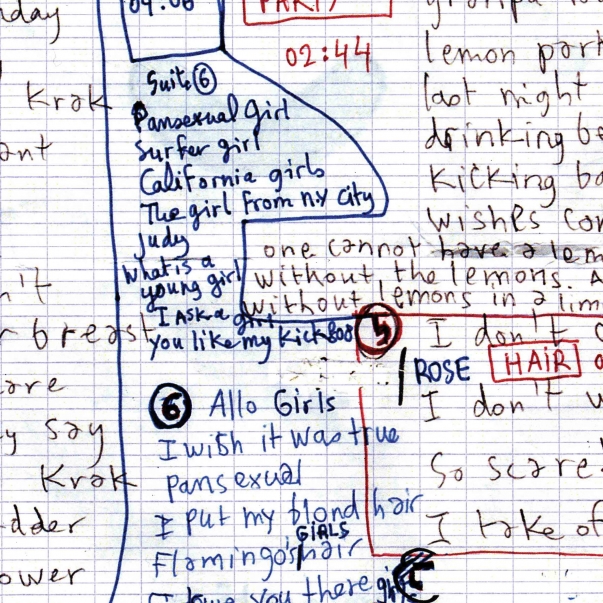 04:06
PARTY
02:44
nday
Krak
ant
n't
r breast
are
y say
Krak
dder
ower
Suite 6
Pansexual girl
Surfer girl
California girls
The girl from n.y city
Judy
What is a
young girl
I Ask a girl
you like my kick boo
6 Allo Girls
I wish it was true
pansexual
I put my blond hair
GIRLS
Flamingo's hair
I love you there girl
lemon part
last night
drinking be
kicking ba
wishes con
one cannot have a lem
without the lemons. A
without lemons in a lim
5 I don't c
ROSE HAIR
I don't w
So scare
I take of